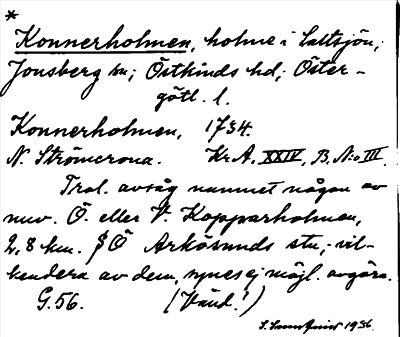 *
Konnerholmen, holme i Saltsjön,
Jonsberg sn; Östkinds hd; Öster-
götl. l.
Konnerholmen, 1734.
N. Strömcrona. Kr.A. XXIV, B. N:o III.
Trol. avsåg namnet någon av
nuv. Ö. eller V. Kopparholmen,
2,8 km. S Ö Arkösunds stn; vil-
kendera av dem, synes ej möjl. avgöra.
G. 56. (Vänd!)
1936.